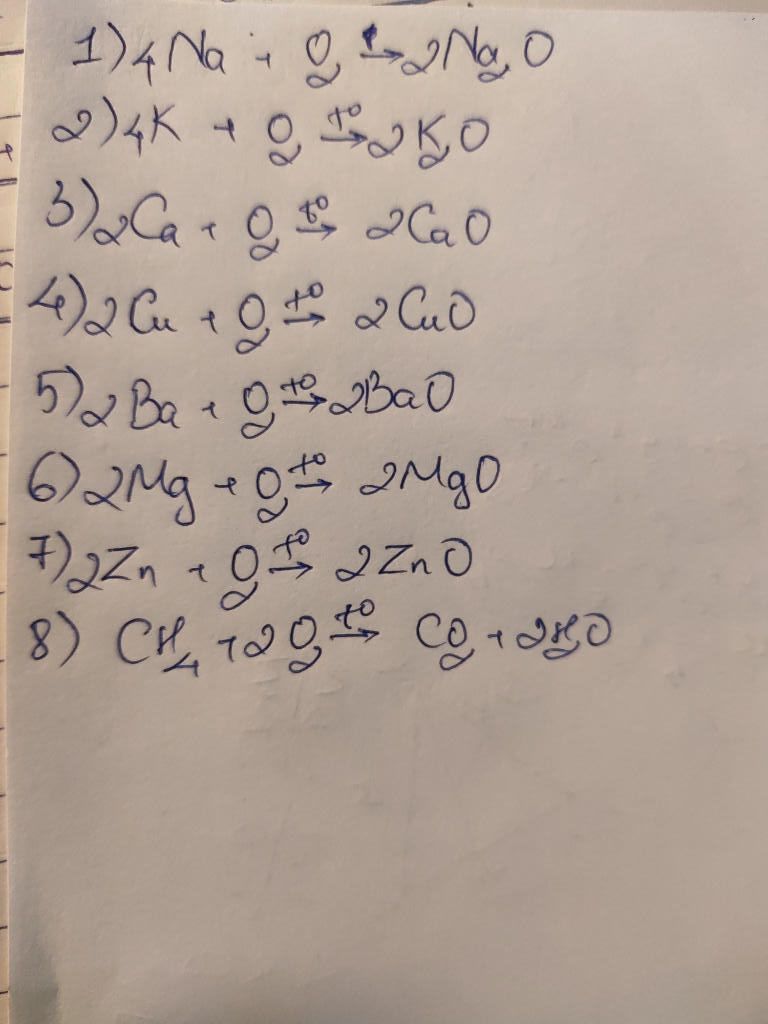 1) 4Na + O₂ → 2Na₂O
2) 4K + O₂ →(t°) 2K₂O
3) 2Ca + O₂ →(t°) 2CaO
4) 2Cu + O₂ →(t°) 2CuO
5) 2Ba + O₂ →(t°) 2BaO
6) 2Mg + O₂ →(t°) 2MgO
7) 2Zn + O₂ →(t°) 2ZnO
8) CH₄ + 2O₂ →(t°) CO₂ + 2H₂O